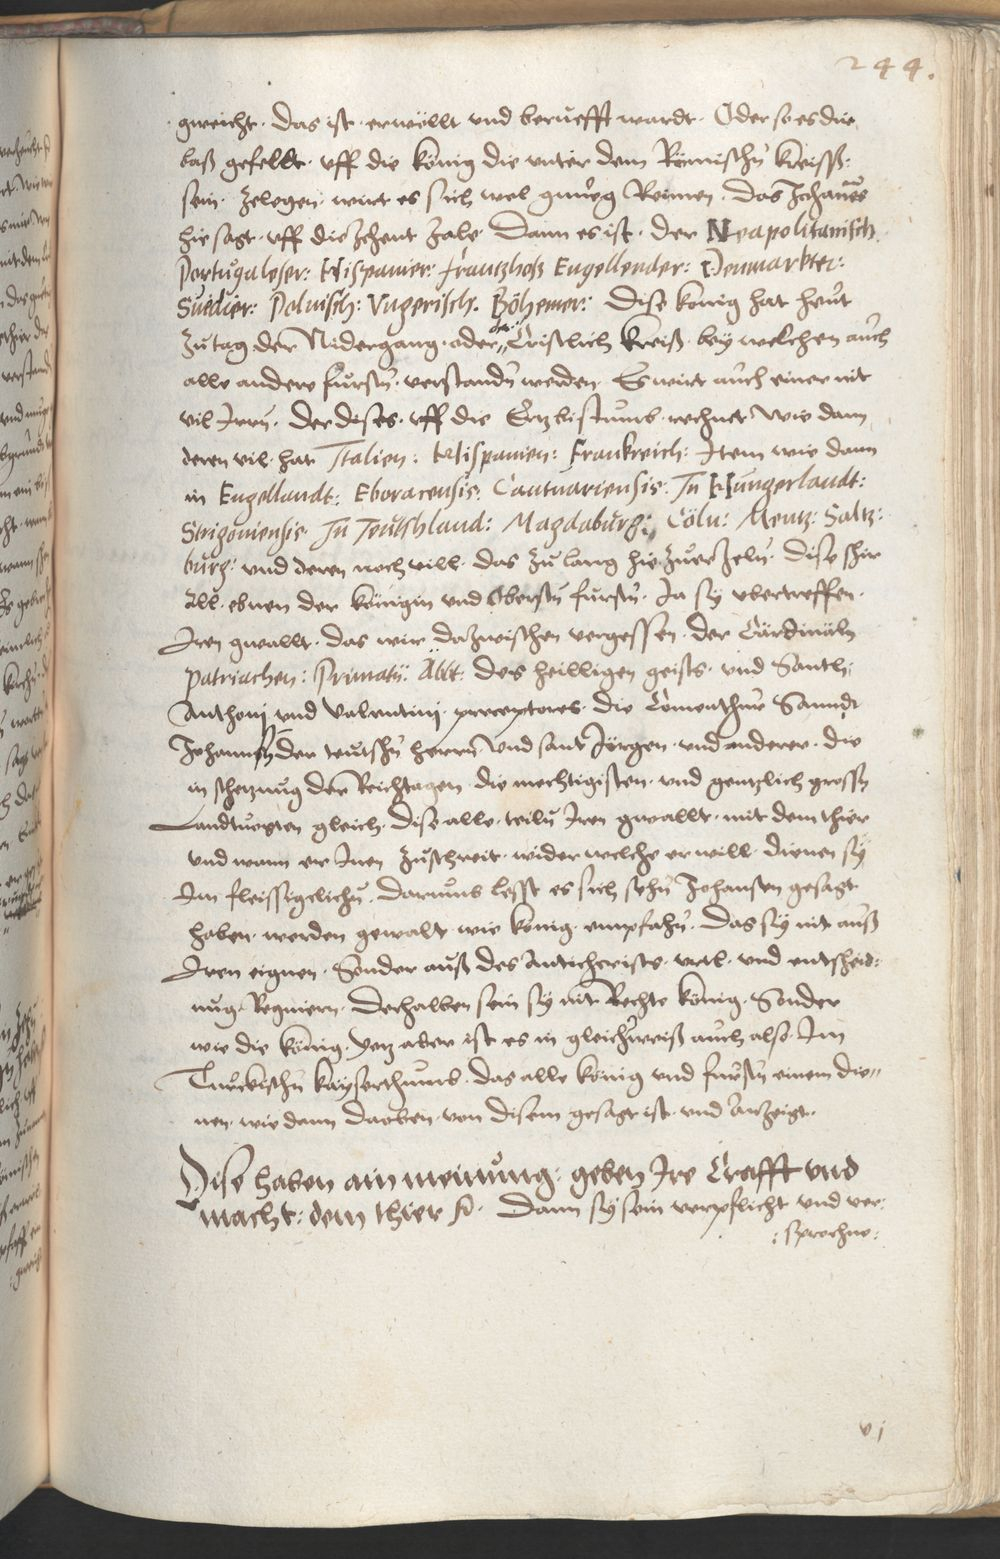 244.
gweicht. Das ist. erwöllt vnd berüefft wardt. Oder so es dir
baß gefelldt. vff die könig die vnter dem Römischn kreisß.
sein. zelegen. wirt es sich wol gnüeg Reimen. Das Johannes
hie sagt. vff die zehent zale. Dann es ist. der Neapolitanisch
Portugaleser: Hispanier: frantzhoß Engellender: Denmarkter:
Suedier: Polnisch: Vngerisch. Böhemer: Dise konig hat heut
zu tag der Nidergang. oder der Cristlich kreiß. bey welchen auch
alle andere fürstn. verstandn werden. Es wirt auch einer nit
vil Irrn. der dises. vff die Ertzbistumb. rechnet wie dann
deren vil. hat Italien: Hispanien: Frankreich: Item wie dann
in Engellandt: Eboracensis. Cantuariensis. In Hungerlandt:
Strigoniensis. In Teutschland: Magdaburg: Cöln: Mentz: Saltz:
burg: vnd deren noch vill. das zu lang hie zuerzeln. Dise schir
all. ebnen der königin vnd Obersten fürstn. Ja sy vbertreffen.
Iren gwallt. das wir dazwischen vergessen. der Cardinäln
Patriachen: Primatn: Äbbt: des heilligen geists. vnd Santh:
Anthonj vnd Valentini. preceptores. die Comenthur Sanndt
Johannsn der teutschn herrn. vnd sant Jörgen. vnd anderer. die
in schetzung der Reichtagen. die mechtigisten. vnd gentzlich grossn
Landtuogten gleich. Dise alle. teiln Iren gwallt. mit dem thier
vnd wann er Inen zuschreit. wider welche er will. dienen sy
Im fleissiglichn. Darumb lesst es sich sehn Johansen gesagt
haben. werden gewalt. wie konig. empfahn. Das sy nit auß
Iren eignen. Sonder auß des Antichrists. vrtl. vnd entscheid:
nug. Regniern. Derhalben sein sy nit Rechte könig. Sonder
wie die könig. Yetz aber ist es in gleichweiß auch also. Im
Türckischn kaysertumb. das alle könig vnd fürstn einem die"
nen. wie dann daoben. von disem gesagt ist. vnd Anzeigt.
Dise haben ain meinung: geben Ire Crafft vnd
macht: dem thier. Dann sy sein verpflicht vnd ver:
: sprochne:
vj